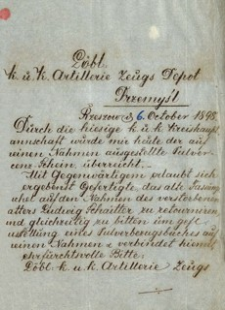 Löbl.
k. u. k. Artillerie Zeugs Depot
Przemyśl
Rzeszow 6. October 1898.
Durch die hiesige k. u. k. Kreishaupt
annschaft wurde mir heute der auf
einen Namen ausgestellte Pulver
enz Schein überreicht.
Mit Gegenwärtigem erlaubt sich
ergebenst Gefertigte, das alte Fassung
auf den Namen des verstorbenen
Ludwig Schaitter zu retourniren,
und gleichzeitig zu bitten um gefl.
eines Pulverbezugbuches auf
einen Namen & verbindet hiemit
ehrfurchtsvolle Bitte:
Löbl. k. u. k. Artillerie Zeugs